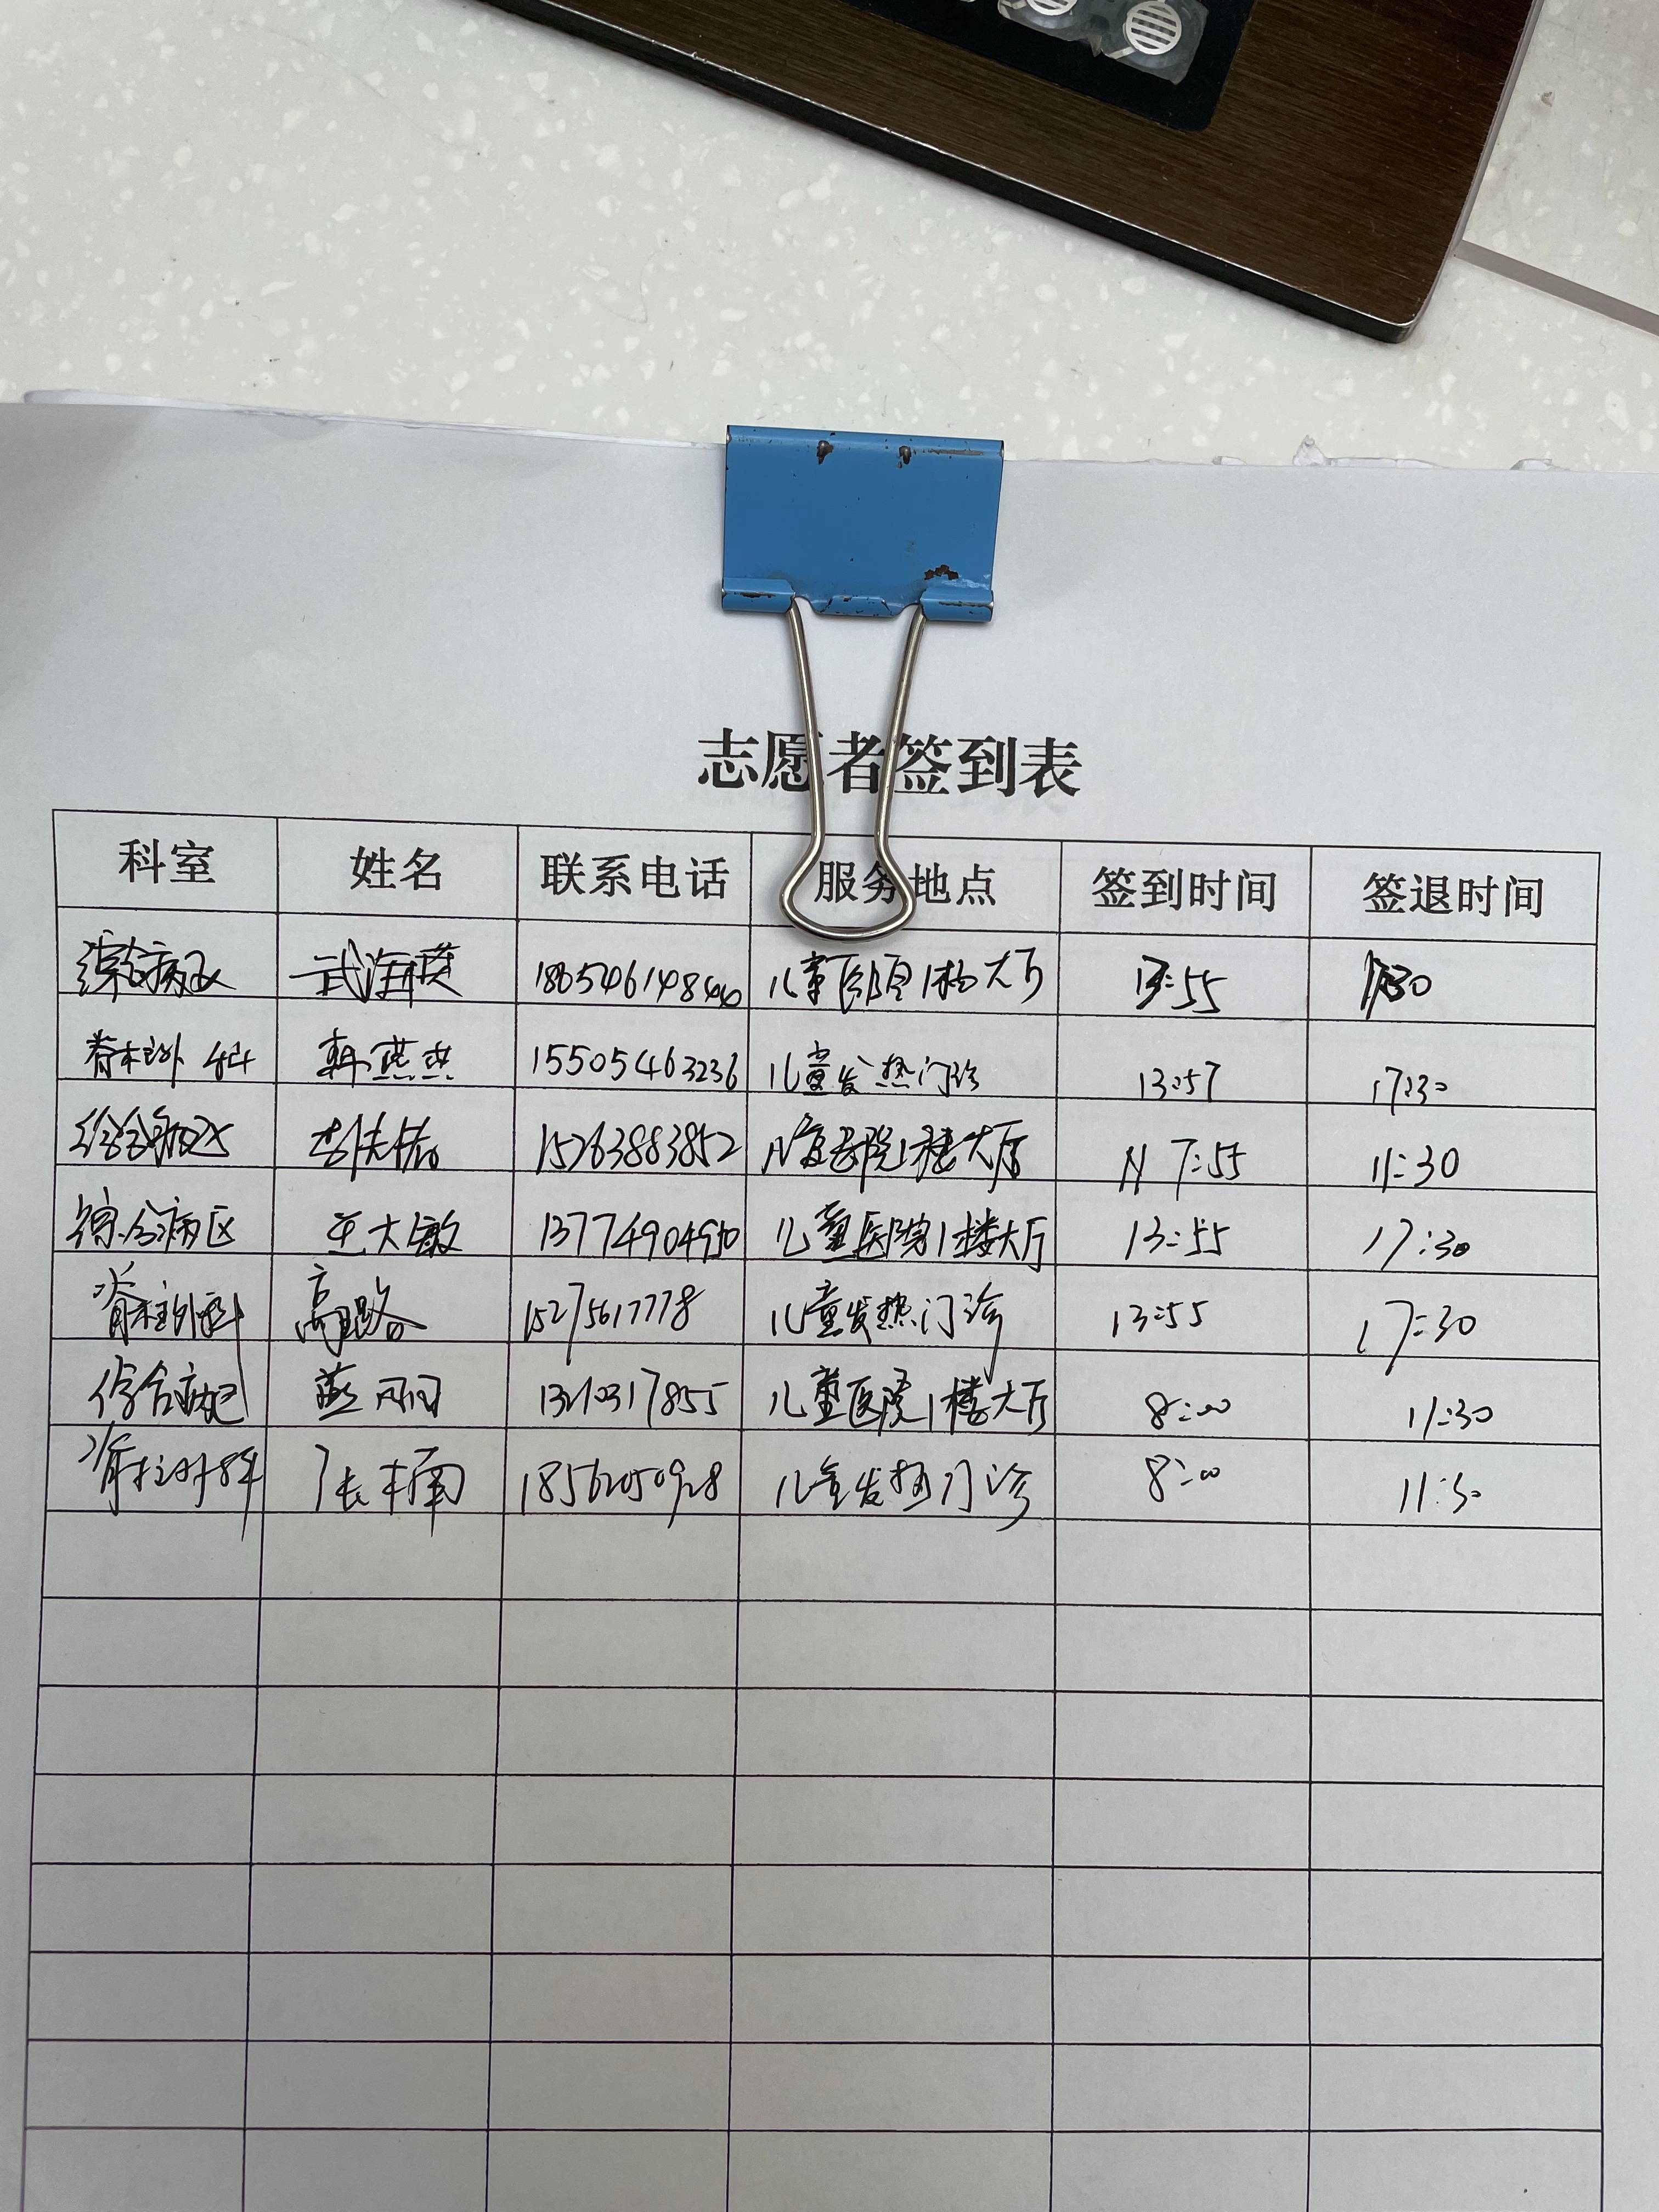 志愿者签到表
科室 姓名 联系电话 服务地点 签到时间 签退时间
综合病区 武海燕 儿童医院1楼大厅 13:55
脊柱外科 韩燕燕 15505463236 儿童发热门诊 13:57 17:30
综合病区 15263883852 儿童医院1楼大厅 7:55 11:30
综合病区 王大敏 儿童医院1楼大厅 13:55 17:30
脊柱外科 高璐 15275617778 儿童发热门诊 13:55 17:30
综合病区 燕丽丽 儿童医院1楼大厅 8:00 11:30
脊柱外科 张楠 儿童发热门诊 8:00 11:30